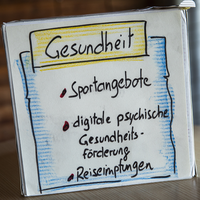 Gesundheit
• Sportangebote
• digitale psychische
Gesundheits-
förderung
• Reiseimpfungen